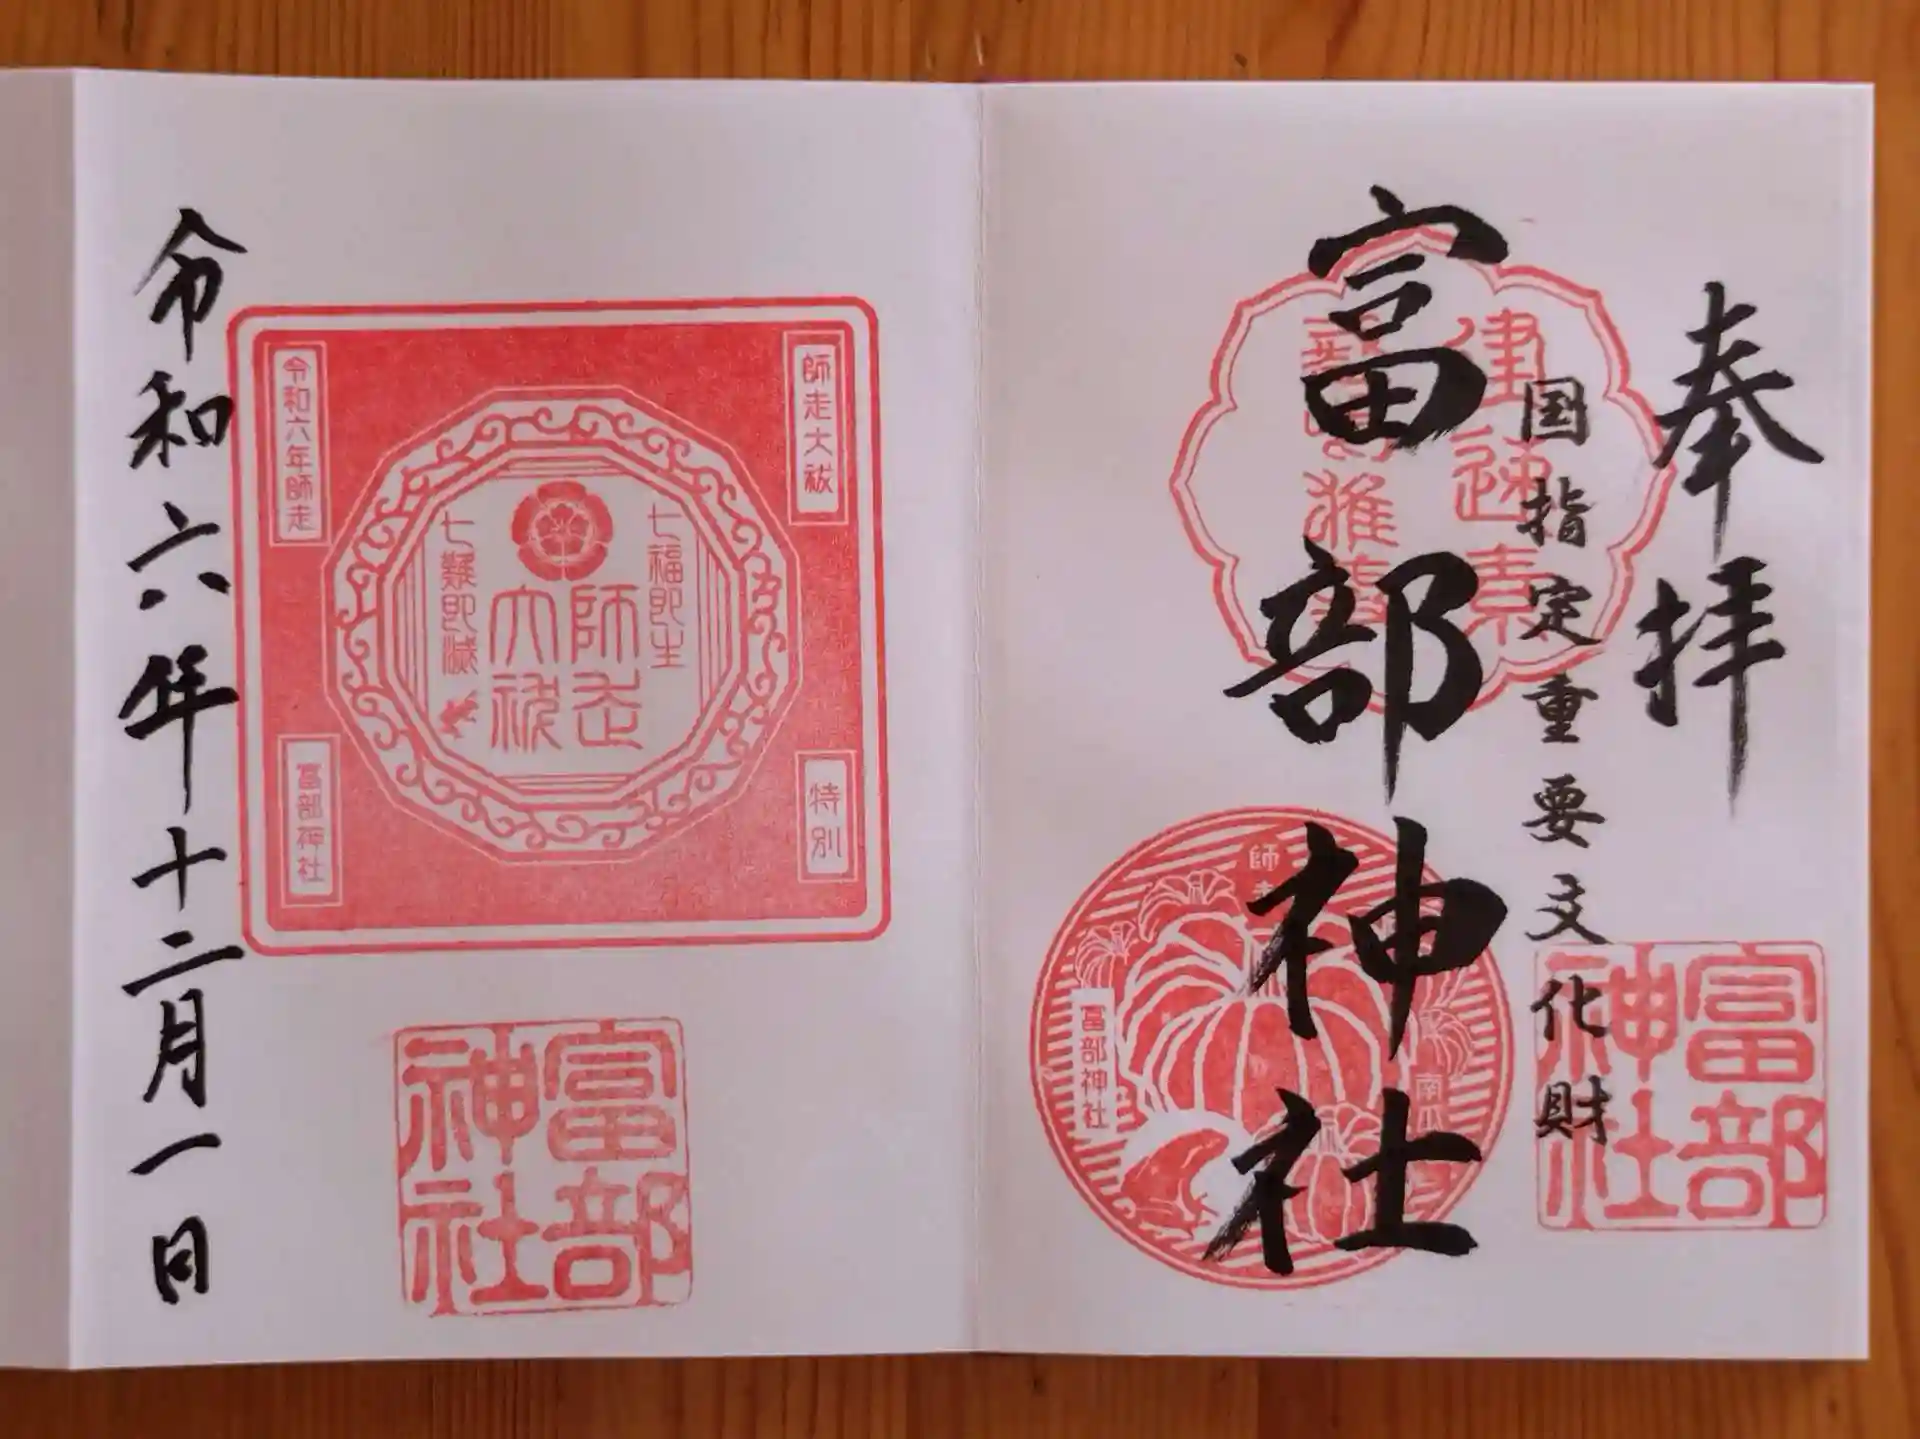 奉拝
国指定重要文化財
富部神社
建速素
富部
神社
師走
富部神社
師走大祓
特別
七福即生
師走
大祓
七難即滅
令和六年師走
富部神社
富部
神社
令和六年十二月一日